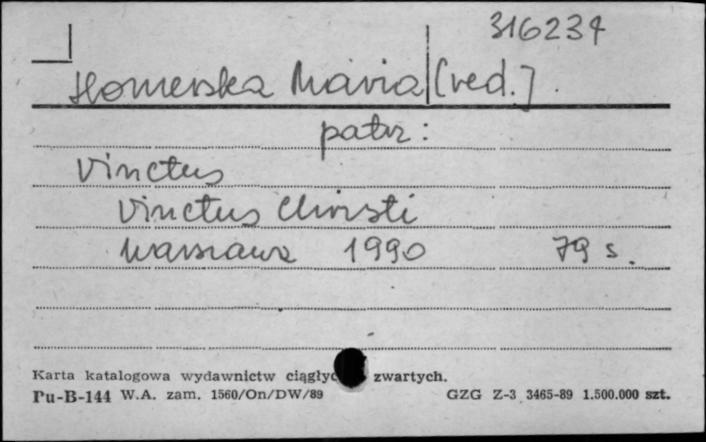 316234
Homerska Maria (red.)
patrz:
Vinctus
Vinctus Christi
Warszawa 1990 79 s.
Karta katalogowa wydawnictw ciągłyc zwartych.
Pu-B-144 W.A. zam. 1560/On/DW/89 GZG Z-3 3465-89 1.500.000 szt.